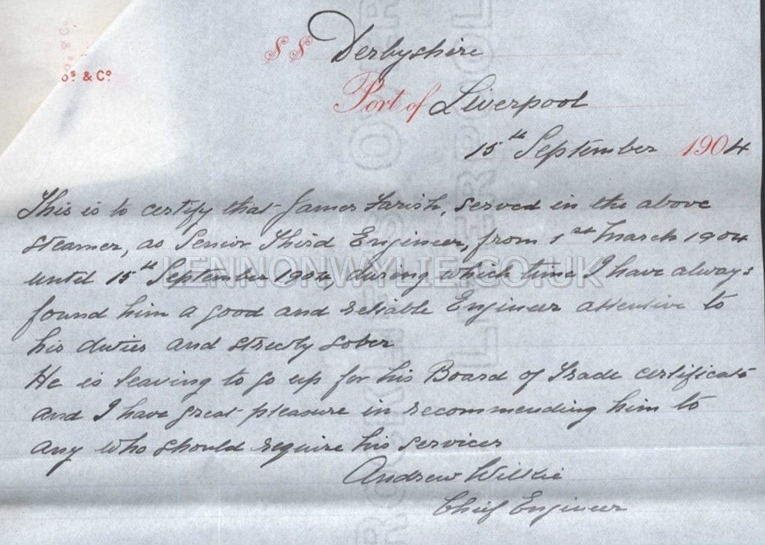 os & Co
SS Derbyshire
Port of Liverpool
15th September 1904
This is to certify that James Farish, served in the above
steamer, as Senior Third Engineer, from 1st March 1904
until 15th September 1904 during which time I have always
found him a good and reliable Engineer attentive to
his duties and strictly sober
He is leaving to go up for his Board of Trade certificate
and I have great pleasure in recommending him to
any who should require his services
Andrew Wilkie
Chief Engineer
LENNONWYLIE.CO.UK